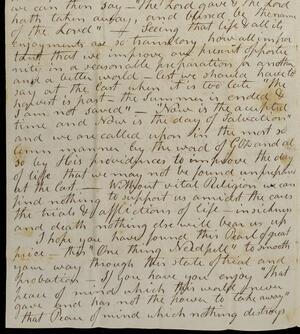 we can then say — "The Lord gave & the Lord
hath taken away, and blessed be the name
of the Lord" — Seeing that life & all its
enjoyments are so transitory how all impor
tant that we improve our present opportu
nity in a reasonable preparation for another
and a better world — lest we should have to
say at the last when it is too late "The
harvest is past — the Summer is ended &
I am not saved" — "Now is the accepted
time and Now is the day of Salvation"
and we are called upon in the most so
lemn manner by the word of God and al
so by His providences to improve the day
of life that we may not be found unprepared
at the last. — Without vital Religion we can
find nothing to support us amidst the cares
the trials & afflictions of life — in sickness
and death nothing else will bear us up
I hope you have found this pearl of great
price — this "One thing Needful" to smooth
your way through this state of trial and
probation — if you have you enjoy "that
peace of mind which this world never
gave and has not the power to take away"
that Peace of mind which nothing destroys